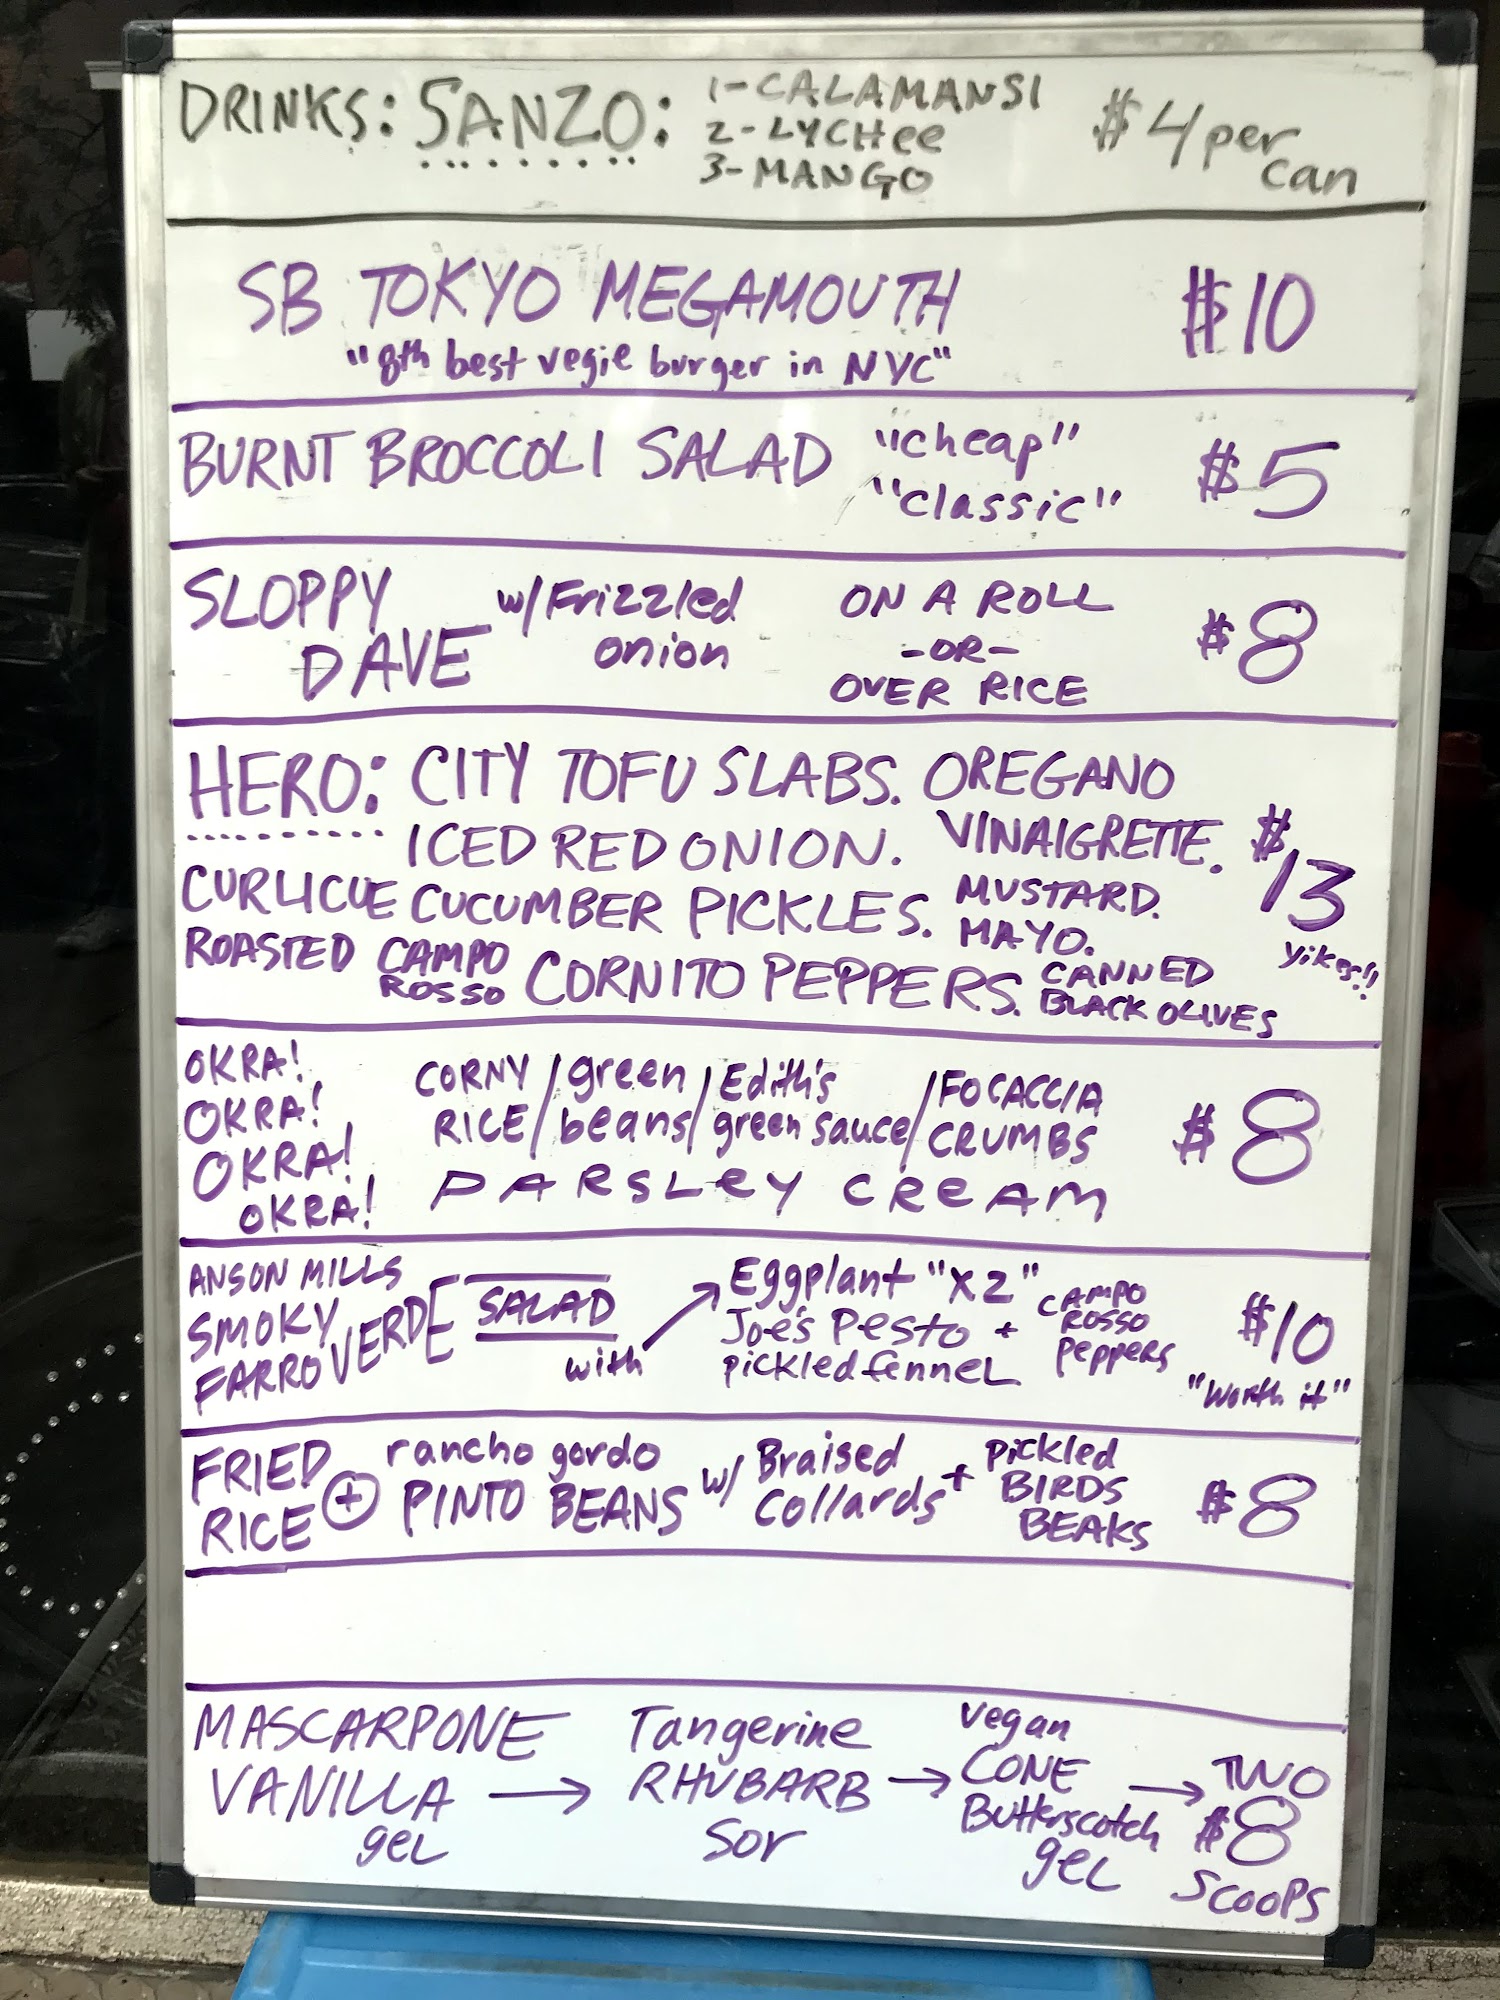 DRINKS: SANZO: 1-CALAMANSI $4 per can
2-LYCHee
3-MANGO
SB TOKYO MEGAMOUTH $10
"8th best vegie burger in NYC"
BURNT BROCCOLI SALAD "cheap" $5
"classic"
SLOPPY DAVE w/Frizzled onion ON A ROLL $8
-OR-
OVER RICE
HERO: CITY TOFU SLABS. OREGANO
ICED RED ONION. VINAIGRETTE. $13
CURLICUE CUCUMBER PICKLES. MUSTARD. MAYO. yikes!!
ROASTED CAMPO ROSSO CORNITO PEPPERS. CANNED BLACK OLIVES
OKRA!
OKRA!
OKRA!
OKRA!
CORNY RICE/green beans/Edith's green sauce/FOCACCIA CRUMBS $8
PARSLeY CReAM
ANSON MILLS
SMOKY
FARRO VERDE SALAD
with
Eggplant "X2"
Joe's Pesto +
pickled fenneL
CAMPO
ROSSO
Peppers
$10
"Worth it"
FRIED RICE + rancho gordo PINTO BEANS w/ Braised Collards + Pickled BIRDS BEAKS $8
MASCARPONE
VANILLA
geL
→
Tangerine
RHUBARB
Sor
→
Vegan
CONE
Butterscotch
geL
→
TWO
$8
SCOOPS